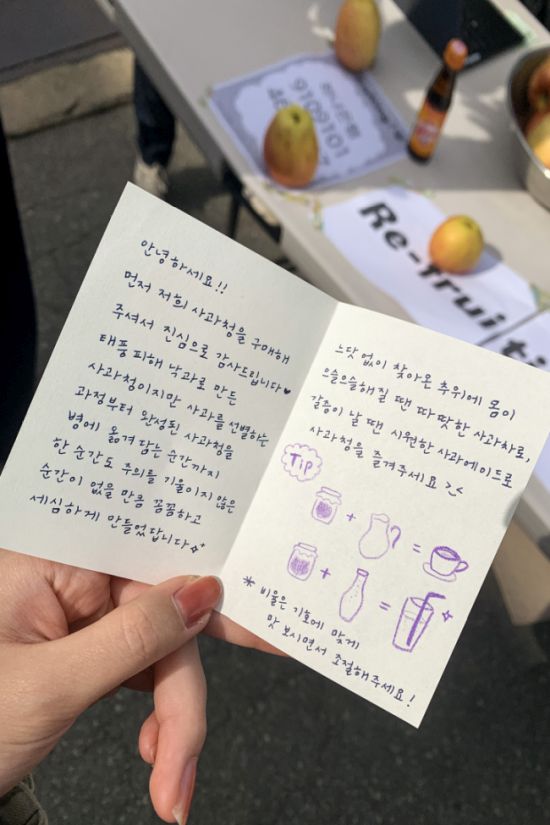 안녕하세요!!
먼저 저희 사과청을 구매해
주셔서 진심으로 감사드립니다♥
태풍 피해 낙과로 만든
사과청이지만 사과를 선별하는
과정부터 완성된 사과청을
병에 옮겨 담는 순간까지
한 순간도 주의를 기울이지 않은
순간이 없을 만큼 꼼꼼하고
세심하게 만들었답니다
느닷 없이 찾아온 추위에 몸이
으슬으슬해질 땐 따땃한 사과차로,
갈증이 날 땐 시원한 사과에이드로
사과청을 즐겨주세요 >_<
Tip
+ =
+ =
* 비율은 기호에 맞게
맛 보시면서 조절해주세요!
9109101
Re-fruit